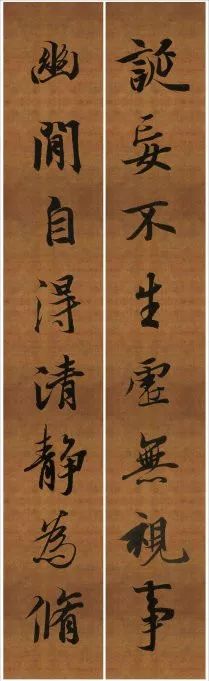 誕妄不生虛無視事
幽閒自得清静為脩